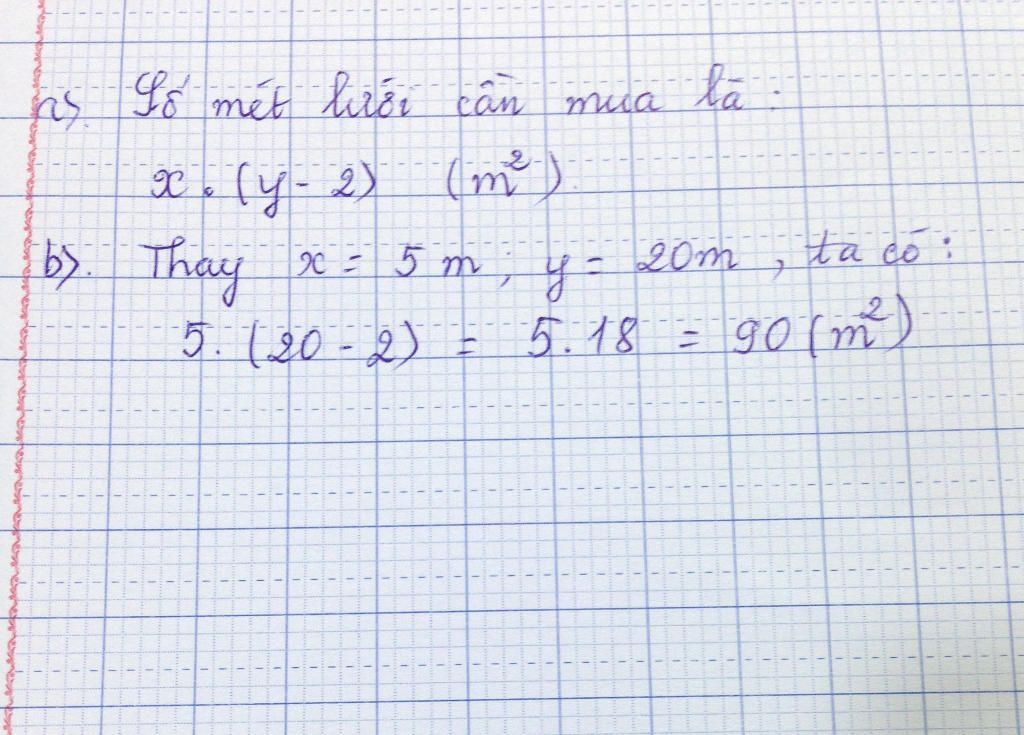 a). Số mét lưới cần mua là:
x.(y-2) (m²).
b). Thay x = 5m; y = 20m, ta có:
5.(20-2) = 5.18 = 90(m²)